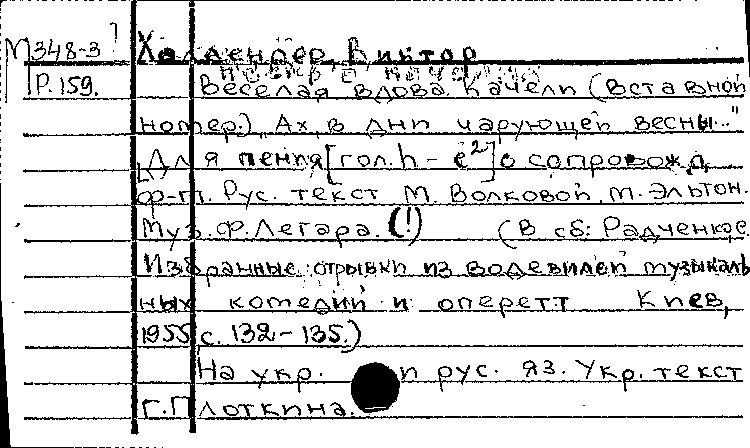 М348-3 Холлендер, Виктор
Р.159. Веселая вдова. Качели (вставной
номер.) "Ах, в дни чарующей весны..."
Для пения [гол. h - e²] с сопровожд.
ф-п. Рус. текст М. Волковой, М. Эльтон.
Муз. Ф. Легара. (!) (В сб: Радченко С.
Избранные отрывки из водевилей музыкаль
ных комедий и оперетт Киев,
1955, с. 132-135.)
На укр. и рус. яз. Укр. текст
Г. Плоткина.